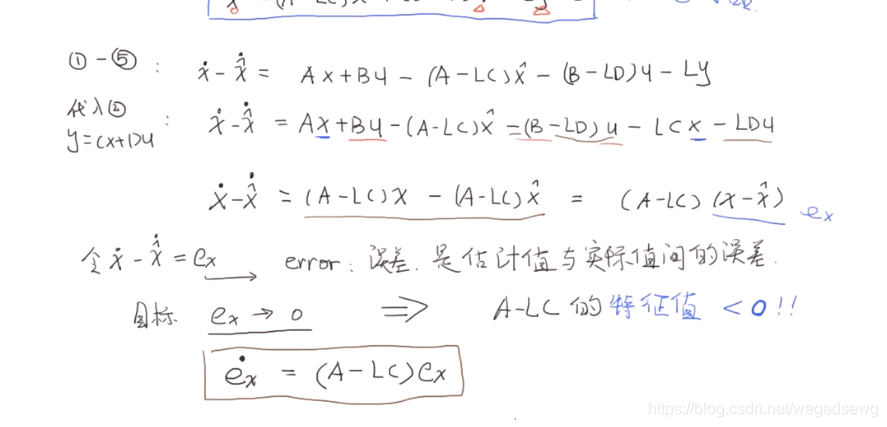 ①-⑤: ẋ-x̂̇ = Ax+Bu-(A-LC)x̂-(B-LD)u-Ly
代入② y=Cx+Du: ẋ-x̂̇ = Ax+Bu-(A-LC)x̂=(B-LD)u-LCx-LDu
ẋ-x̂̇ = (A-LC)x-(A-LC)x̂ = (A-LC)(x-x̂) ex
令 ẋ-x̂̇ = ex → error: 误差. 是估计值与实际值间的误差.
目标 ex → 0 ⇒ A-LC 的特征值 <0!!
ėx = (A-LC)ex
https://blog.csdn.net/wegadsewg